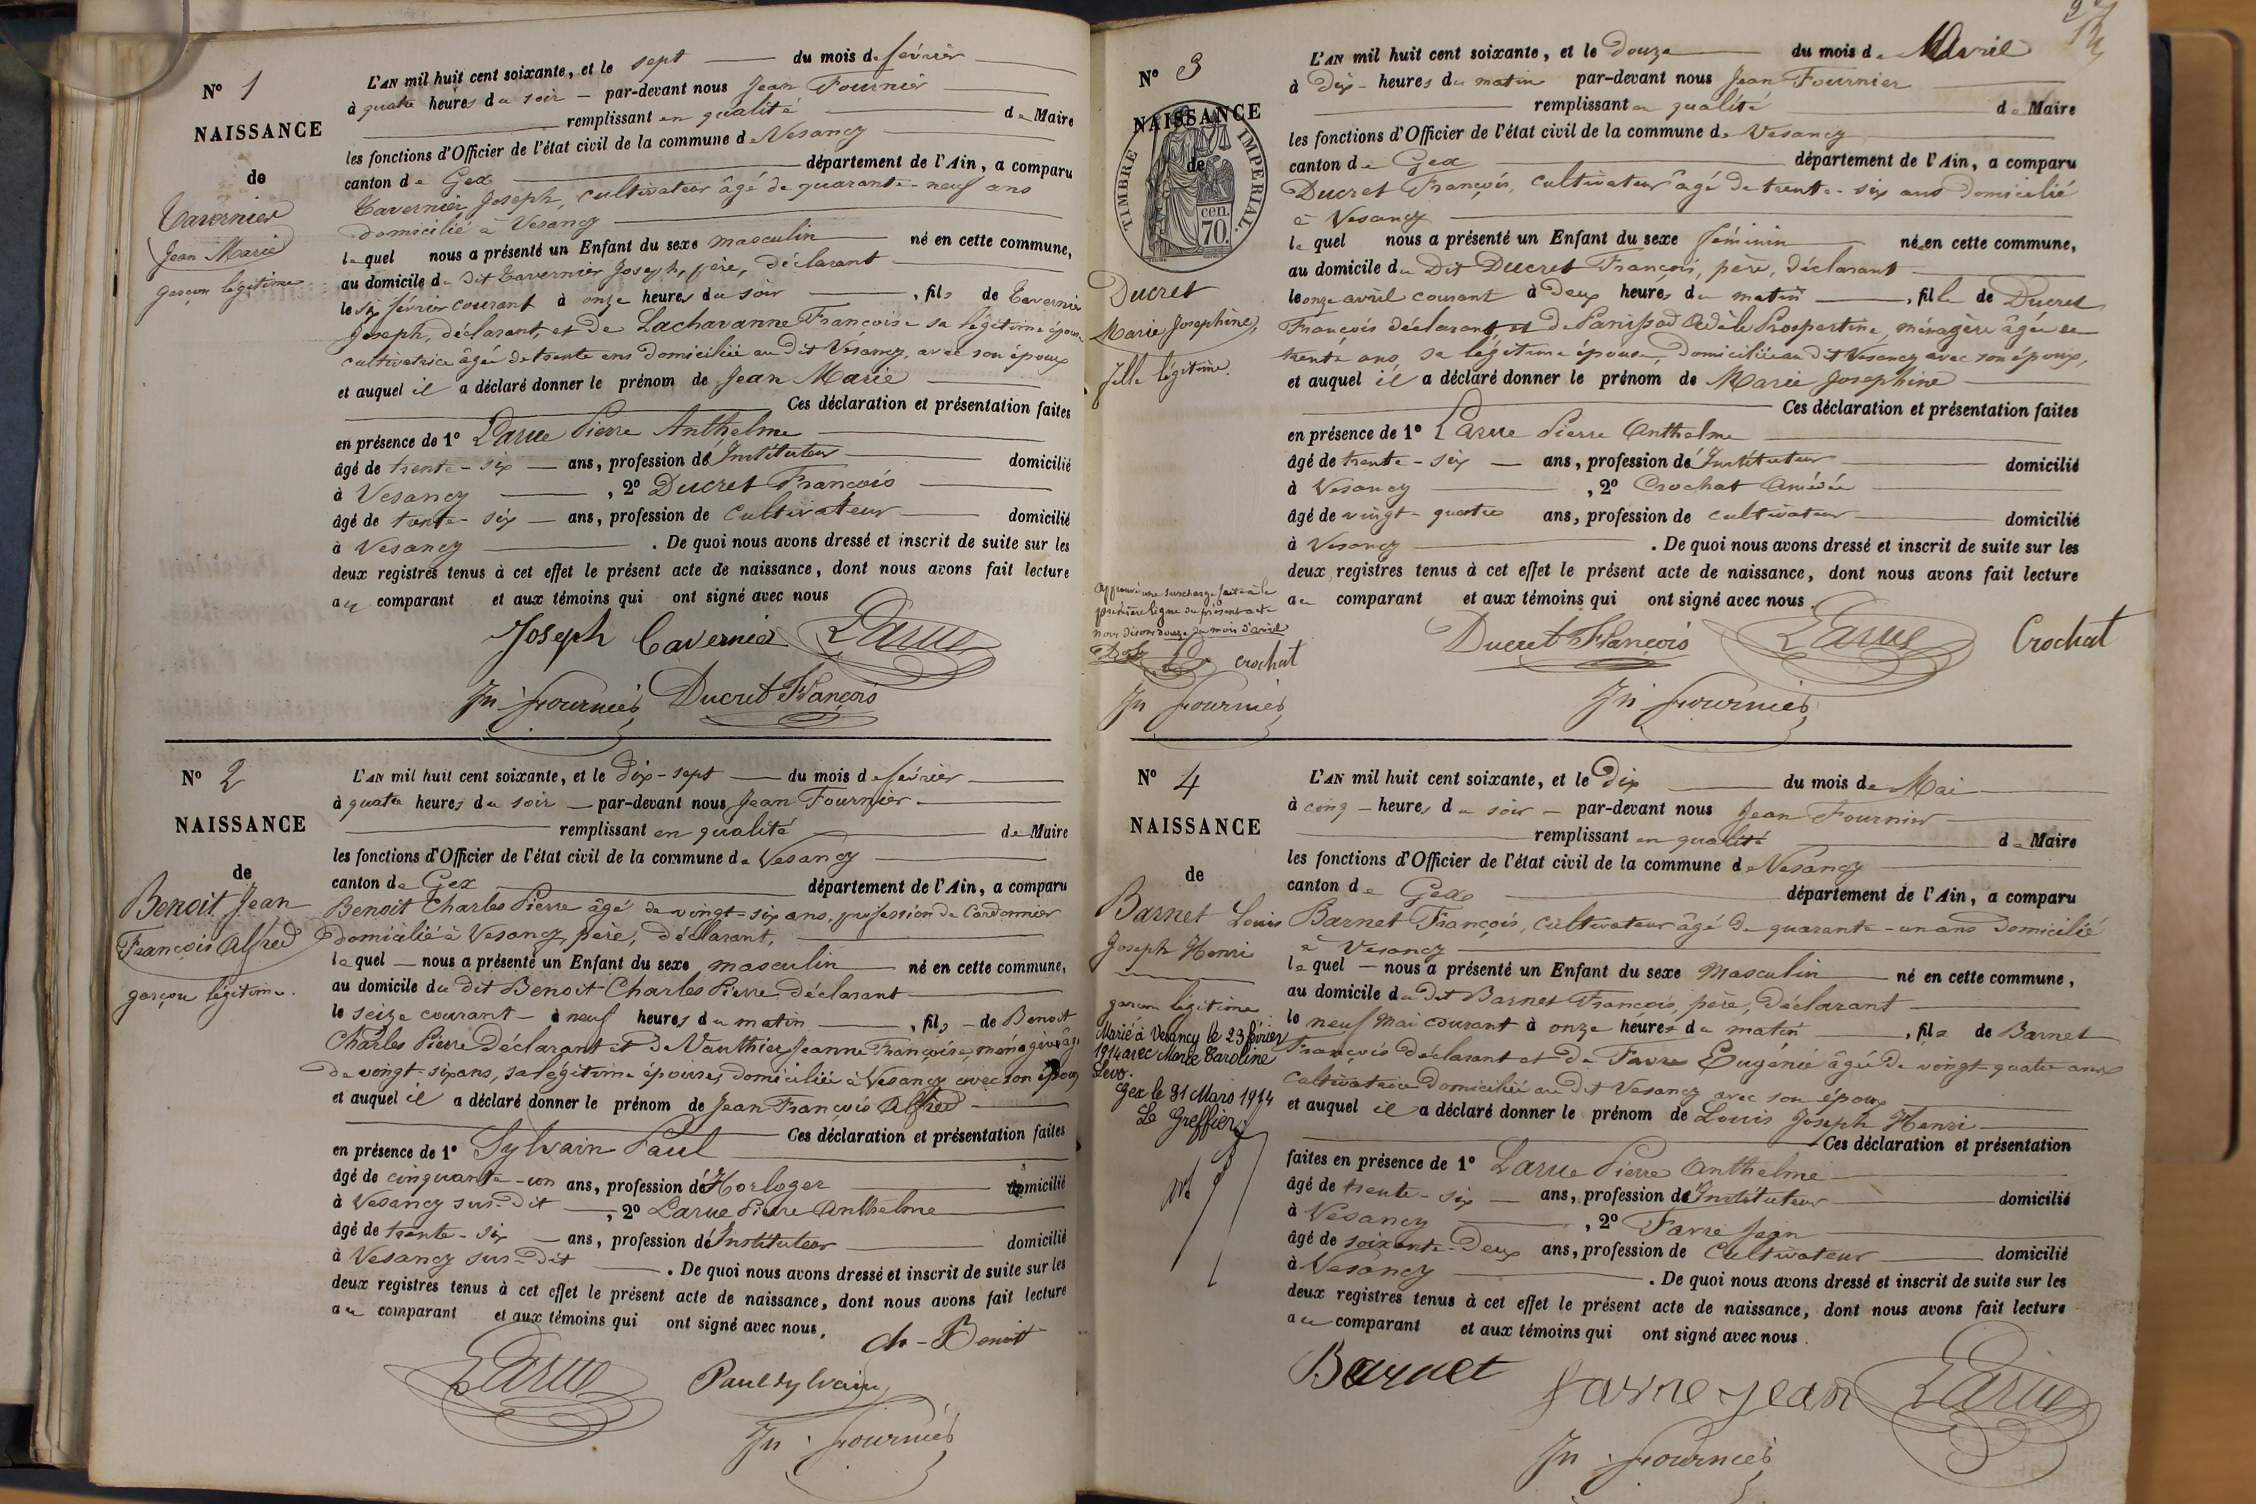 N° 1
NAISSANCE
de
Tavernier
Jean Marie
garçon légitime
L'AN mil huit cent soixante, et le sept du mois de février
à quatre heures du soir par-devant nous Jean Fournier
remplissant en qualité de Maire
les fonctions d'Officier de l'état civil de la commune de Vesancy
canton de Gex département de l'Ain, a comparu
Tavernier Joseph, cultivateur âgé de quarante-neuf ans
domicilié à Vesancy
lequel nous a présenté un Enfant du sexe masculin né en cette commune,
au domicile du dit Tavernier Joseph, père, déclarant
le six février courant à onze heures du soir, fils de Tavernier
Joseph, déclarant, et de Lachavanne Françoise sa légitime épouse
cultivatrice âgée de trente ans domiciliée au dit Vesancy, avec son époux
et auquel il a déclaré donner le prénom de Jean Marie
Ces déclaration et présentation faites
en présence de 1° Larue Pierre Anthelme
âgé de trente-six ans, profession d'Instituteur domicilié
à Vesancy, 2° Ducret François
âgé de trente-six ans, profession de cultivateur domicilié
à Vesancy. De quoi nous avons dressé et inscrit de suite sur les
deux registres tenus à cet effet le présent acte de naissance, dont nous avons fait lecture
au comparant et aux témoins qui ont signé avec nous
Joseph Tavernier Larue
Jn Fournier Ducret François
N° 2
NAISSANCE
de
Benoit Jean
François Alfred
garçon légitime.
L'AN mil huit cent soixante, et le dix-sept du mois de février
à quatre heures du soir par-devant nous Jean Fournier
remplissant en qualité de Maire
les fonctions d'Officier de l'état civil de la commune de Vesancy
canton de Gex département de l'Ain, a comparu
Benoit Charles Pierre âgé de vingt-six ans, profession de Cordonnier
domicilié à Vesancy, père, déclarant,
lequel nous a présenté un Enfant du sexe masculin né en cette commune,
au domicile du dit Benoit Charles Pierre déclarant
le seize courant à neuf heures du matin, fils de Benoit
Charles Pierre Déclarant et de Vauthier Jeanne Françoise, ménagère âgée
de vingt-six ans, sa légitime épouse, domiciliée à Vesancy avec son époux
et auquel il a déclaré donner le prénom de Jean François Alfred
Ces déclaration et présentation faites
en présence de 1° Sylvain Paul
âgé de cinquante-un ans, profession d'Horloger domicilié
à Vesancy sus-dit, 2° Larue Pierre Anthelme
âgé de trente-six ans, profession d'Instituteur domicilié
à Vesancy sus-dit. De quoi nous avons dressé et inscrit de suite sur les
deux registres tenus à cet effet le présent acte de naissance, dont nous avons fait lecture
au comparant et aux témoins qui ont signé avec nous.
ch - Benoit
Larue Paul Sylvain
Jn Fournier
N° 3
NAISSANCE
de
TIMBRE IMPERIAL.
cen.
70.
Ducret
Marie Josephine,
fille légitime.
L'AN mil huit cent soixante, et le douze du mois de Avril
à Dix heures du matin par-devant nous Jean Fournier
remplissant en qualité de Maire
les fonctions d'Officier de l'état civil de la commune de Vesancy
canton de Gex département de l'Ain, a comparu
Ducret François, cultivateur âgé de trente-six ans domicilié
à Vesancy
lequel nous a présenté un Enfant du sexe féminin née en cette commune,
au domicile du Dit Ducret François, père, déclarant
le onze avril courant à Deux heures du matin, fille de Ducret
François déclarant, et de Panissod Adèle Prospertine, ménagère âgée de
trente ans, sa légitime épouse, domiciliée au dit Vesancy avec son époux,
et auquel il a déclaré donner le prénom de Marie Josephine
Ces déclaration et présentation faites
en présence de 1° Larue Pierre Anthelme
âgé de trente-six ans, profession d'Instituteur domicilié
à Vesancy, 2° Crochat Amédée
âgé de vingt-quatre ans, profession de cultivateur domicilié
à Vesancy. De quoi nous avons dressé et inscrit de suite sur les
deux registres tenus à cet effet le présent acte de naissance, dont nous avons fait lecture
au comparant et aux témoins qui ont signé avec nous.
Approuvé une surcharge faite à la
première ligne du présent acte
nous disons douze du mois d'avril
crochat
Jn Fournier
Ducret François Larue Crochat
Jn Fournier
N° 4
NAISSANCE
de
Barnet Louis
Joseph Henri
garçon légitime
Marié à Vesancy le 23 février
1914 avec Marie Caroline
Gex le 31 Mars 1914
Le Greffier
L'AN mil huit cent soixante, et le Dix du mois de Mai
à cinq heures du soir par-devant nous Jean Fournier
remplissant en qualité de Maire
les fonctions d'Officier de l'état civil de la commune de Vesancy
canton de Gex département de l'Ain, a comparu
Barnet François, cultivateur âgé de quarante-un ans domicilié
à Vesancy
lequel nous a présenté un Enfant du sexe Masculin né en cette commune,
au domicile du dit Barnet François, père, déclarant
le neuf Mai courant à onze heures du matin, fils de Barnet
François déclarant et de Favre Eugénie âgée de vingt-quatre ans
cultivatrice domiciliée au dit Vesancy avec son époux
et auquel il a déclaré donner le prénom de Louis Joseph Henri
Ces déclaration et présentation
faites en présence de 1° Larue Pierre Anthelme
âgé de trente-six ans, profession d'Instituteur domicilié
à Vesancy, 2° Favre Jean
âgé de soixante-Deux ans, profession de Cultivateur domicilié
à Vesancy. De quoi nous avons dressé et inscrit de suite sur les
deux registres tenus à cet effet le présent acte de naissance, dont nous avons fait lecture
au comparant et aux témoins qui ont signé avec nous.
Barnet Favre Jean Larue
Jn Fournier